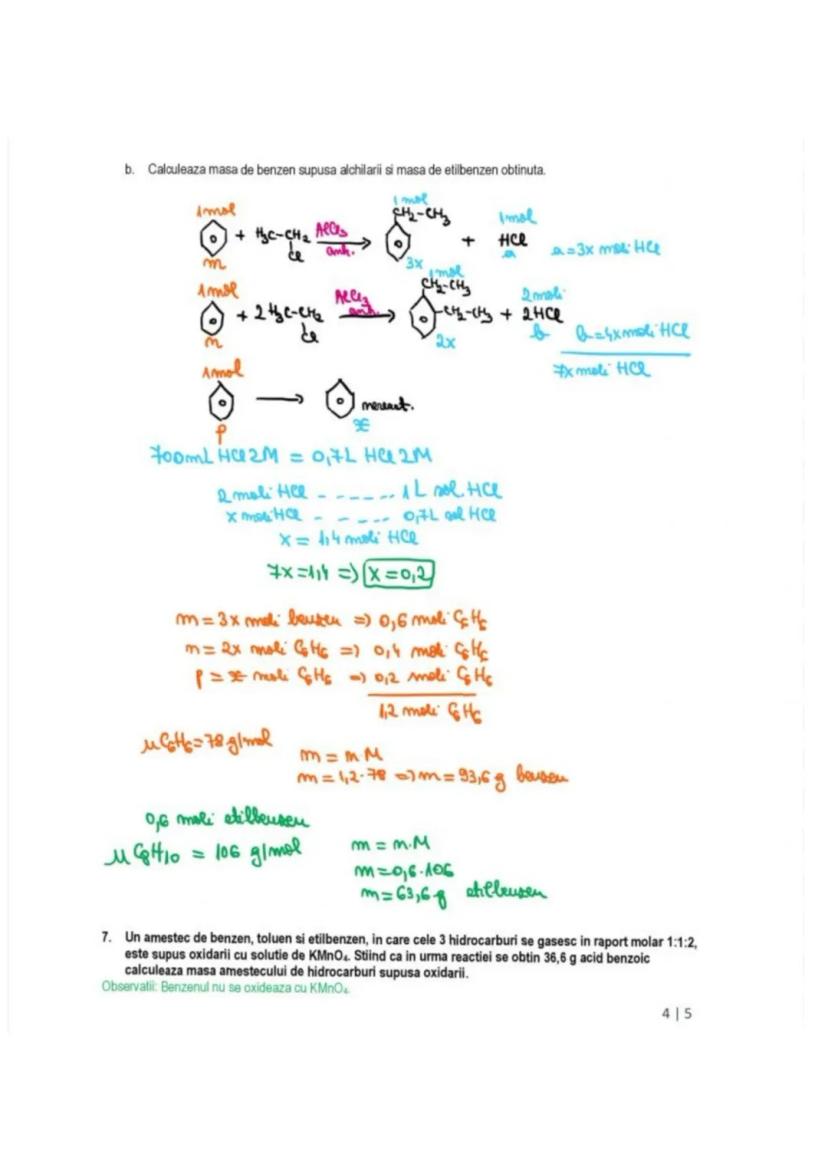 b. Calculeaza masa de benzen supusa alchilarii si masa de etilbenzen obtinuta.
1mol 1mol CH2-CH3 1mol
+ H3C-CH2 Cl AlCl3 anh. → + HCl a = 3x moli HCl
m 3x a
1mol 1mol CH2-CH3 2moli
+ 2 H3C-CH2 Cl AlCl3 anh. → -CH2-CH3 + 2HCl
n 2x b b = 4x moli HCl
1mol 7x moli HCl
→ nereact.
p x
700mL HCl 2M = 0,7L HCl 2M
2 moli HCl - - - - - - .. 1 L sol. HCl
x moli HCl - - - - - - 0,7L sol HCl
x = 1,4 moli HCl
7x = 1,4 => x = 0,2
m = 3x moli benzen => 0,6 moli C6H6
n = 2x moli C6H6 => 0,4 moli C6H6
p = x moli C6H6 => 0,2 moli C6H6
1,2 moli C6H6
μ C6H6 = 78 g/mol
m = n·M
m = 1,2·78 => m = 93,6 g benzen
0,6 moli etilbenzen
μ C8H10 = 106 g/mol
m = n·M
m = 0,6·106
m = 63,6 g etilbenzen
7. Un amestec de benzen, toluen si etilbenzen, in care cele 3 hidrocarburi se gasesc in raport molar 1:1:2,
este supus oxidarii cu solutie de KMnO4. Stiind ca in urma reactiei se obtin 36,6 g acid benzoic
calculeaza masa amestecului de hidrocarburi supusa oxidarii.
Observatii: Benzenul nu se oxideaza cu KMnO4.
4 | 5